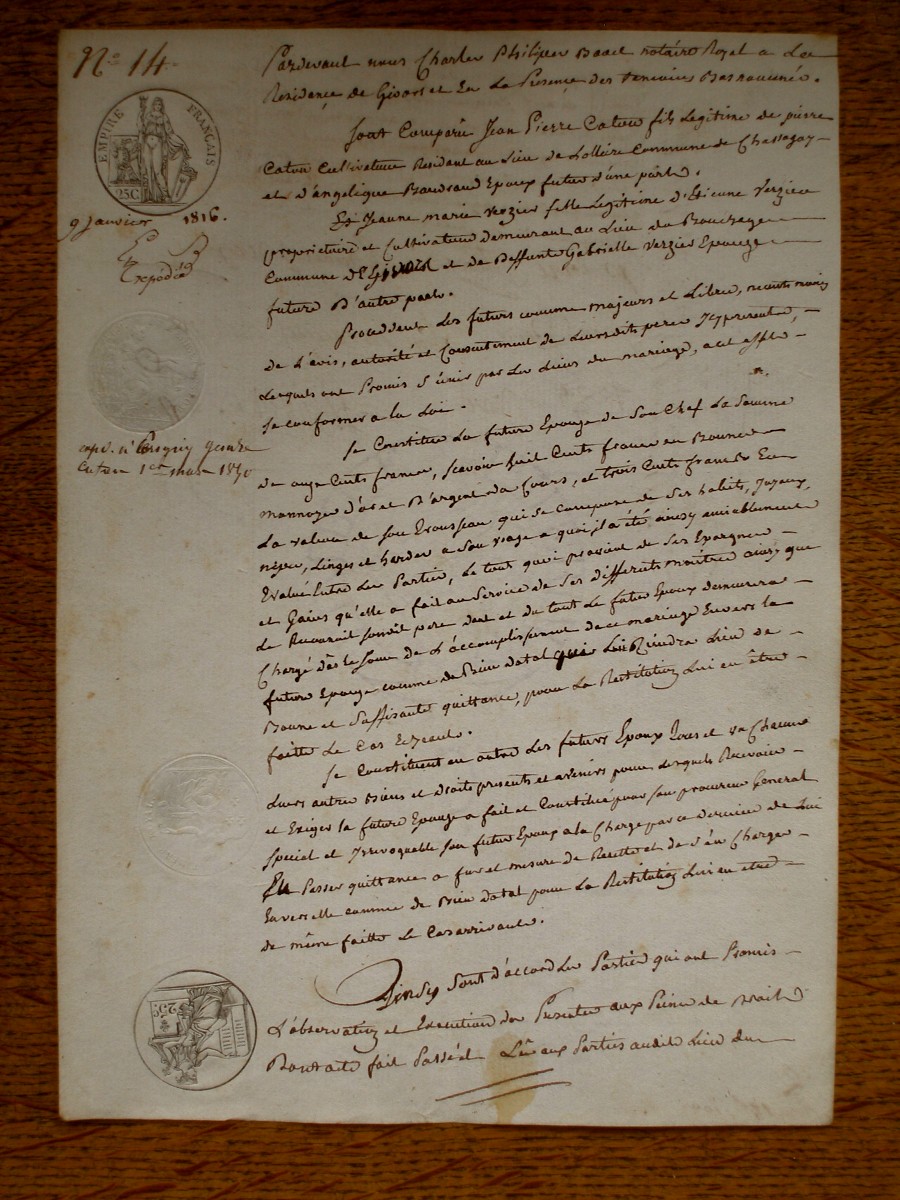 N.o 14
EMPIRE FRANÇAIS
25C
9 janvier 1816.
Expedié
1er mars 1830
25C
Pardevant nous Charles Philipper notaire Royal a La
Residence de Givors et En La Presence des temoins Bas nommés.
Sont Comparu Jean Pierre Caton fils Legitime de pierre
Caton Cultivateur Residant au Lieu de Commune de Chassagny
et d'angelique Baudrand Epoux futur d'une part.
Et Jeanne marie verzier fille Legitime d'Etienne Verzier
propriétaire et Cultivateur demeurant au Lieu du
Commune de Givors et de Deffunte Gabrielle verzier Epouze
future D'autre part.
Proceddent Les futurs comme majeurs et Libre, neantmoins
de L'avis, autorité et Consentement de Leursdits pere Icy present,
Lesquels ont Promis S'unir par Les Liens du mariage, a cet effet
se conformer a la Loi.
Se Constitue La future Epouze de Son Chef La Somme
de onze Cents francs, scavoir huit Cents francs en Bonnes
monnoyes d'or et D'argent du Cours, et trois Cents francs En
La valeur de Son trousseau qui se compose de Ses habits, Joyaux,
Linges et hardes a Son usage a quoi il a été ainsy amiablement
Evalué Entre Les Parties, Le tout quoi provient de Ses Epargnes
et Gains qu'elle a fait au Service de Ses differents maitres ainsy que
Le Reconnoit pere dont et du tout Le futur Epoux demeurera
Chargé dès le Jour de L'accomplissement de ce mariage Envers la
future Epouze comme de Bien dotal Lieu de
Bonne et Suffisante quittance, pour La Restitution Lui en être
faitte Le Cas Echeant.
Se Constituent en outre Les futurs Epoux tous et un Chacun
Leurs autres Biens et Droits presents et avenirs pour Lesquels Recevoir
et Exiger la future Epouze a fait et Constitué pour Son procureur General
Special et Irrevocable Son futur Epoux a la Charge par ce Dernier de Lui
En Passer quittance a fur et mesure de Recette et de s'en Charger
Envers elle comme de Bien dotal pour La Restitution Lui en etre
de même faitte Le Cas arrivant.
Ainsy Sont d'accord Les Parties qui ont Promis
L'observation et Execution des Presentes aux Peines de Droit
Dont acte fait Passé et Lû aux Parties audit Lieu du